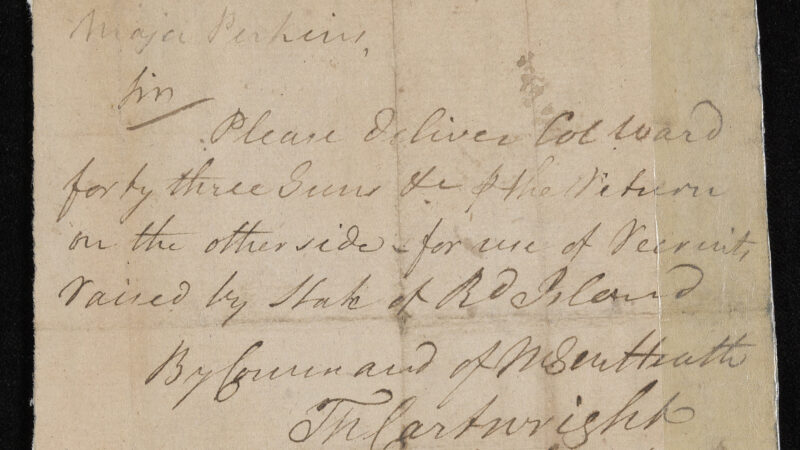 Major Perkins,
Sir
Please deliver Col Ward
forty three Guns &c ⅌ the Return
on the otherside - for use of Recruits
raised by State of Rd Island
By Command of M Gen Heath
Th Cartwright